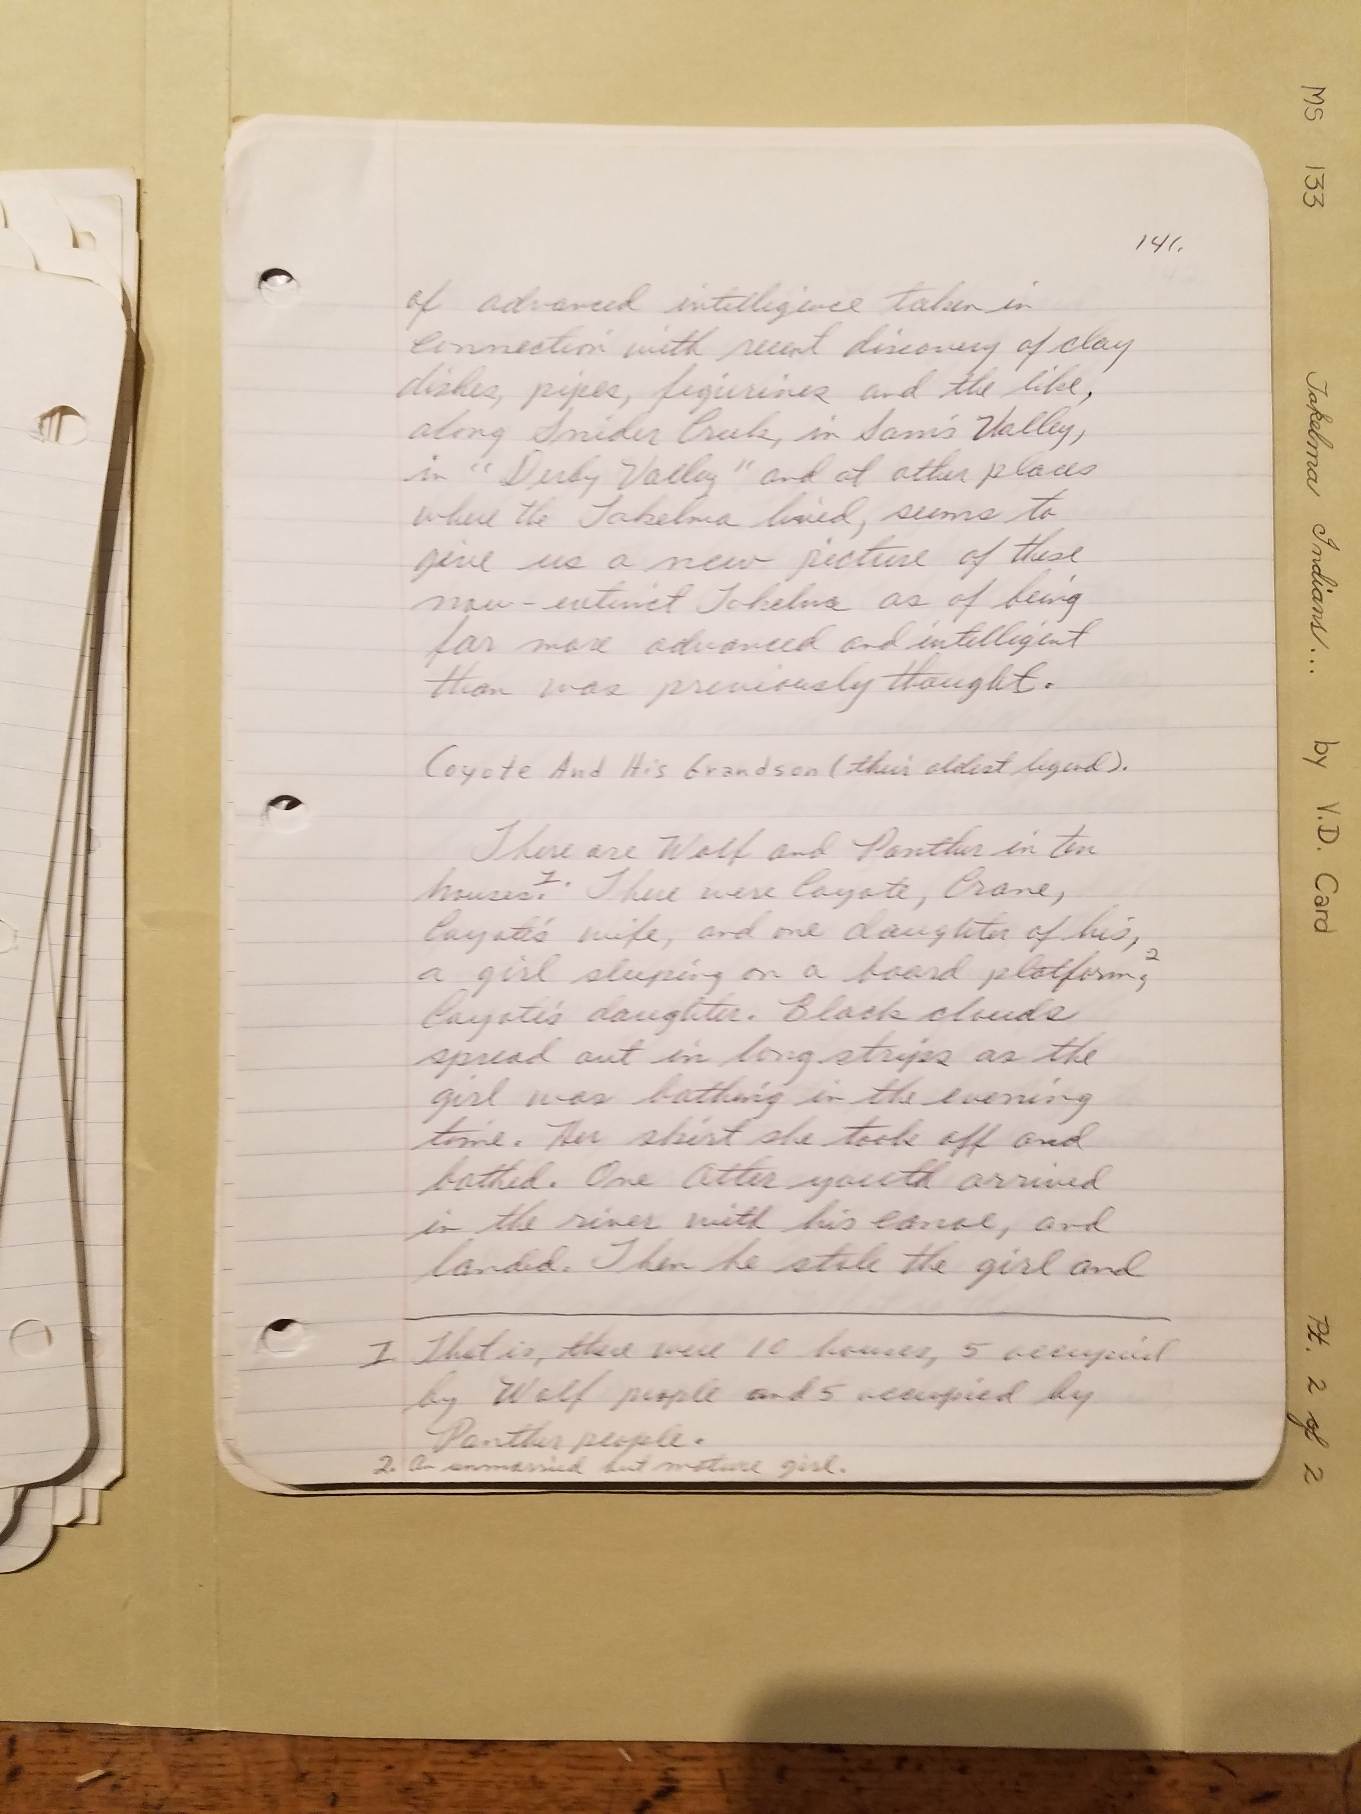 141.
of advanced intelligence taken in
connection with recent discovery of clay
dishes, pipes, figurines and the like,
along Snider Creek, in Sam's Valley,
in "Derby Valley" and at other places
where the Takelma lived, seems to
give us a new picture of these
now-extinct Takelma as of being
far more advanced and intelligent
than was previously thought.
Coyote And His Grandson (their oldest legend).
There are Wolf and Panther in ten
houses.1. There were Coyote, Crane,
Coyote's wife, and one daughter of his,
a girl sleeping on a board platform,2
Coyote's daughter. Black clouds
spread out in long strips as the
girl was bathing in the evening
time. Her skirt she took off and
bathed. One Otter youth arrived
in the river with his canoe, and
landed. Then he stole the girl and
1 That is, there were 10 houses, 5 occupied
by Wolf people and 5 occupied by
Panther people.
2. An unmarried but mature girl.
MS 133 Takelma Indians... by V.D. Card Pt. 2 of 2